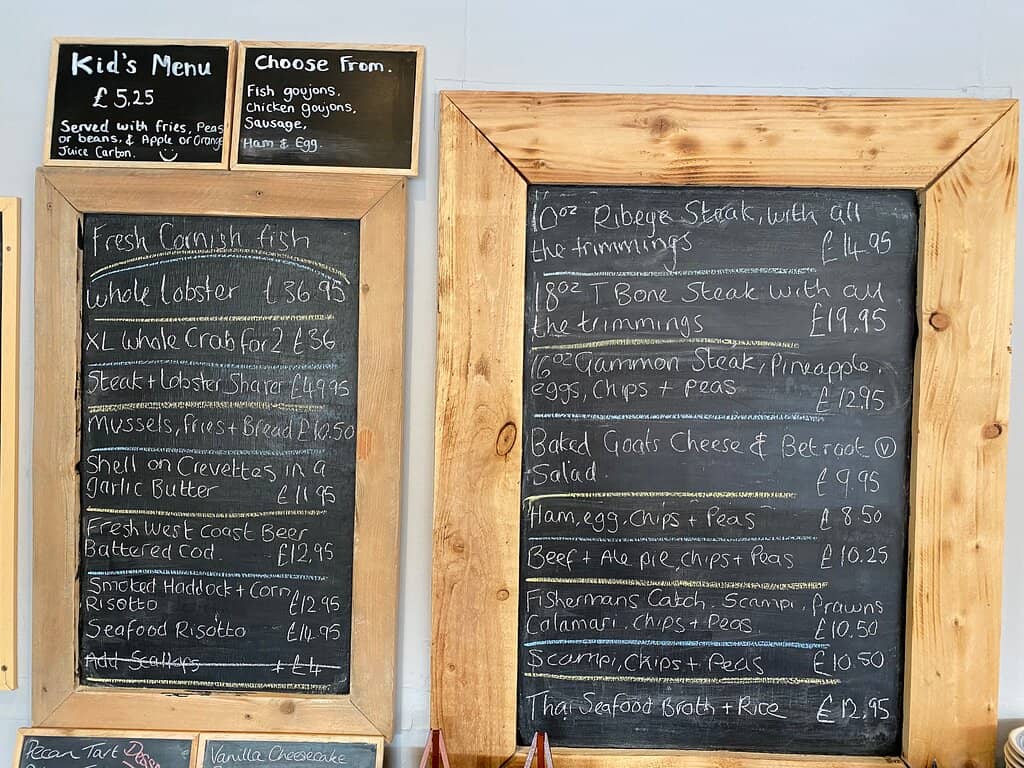 Kid's Menu
£5.25
Served with fries, Peas
or beans, & Apple or Orange
Juice Carton.
Choose From.
Fish goujons,
Chicken goujons,
Sausage,
Ham & Egg.
Fresh Cornish fish
whole lobster £36.95
XL Whole Crab for 2 £36
Steak + Lobster Sharer £49.95
Mussels, fries + Bread £10.50
Shell on Crevettes in a
garlic Butter £11.95
Fresh West Coast Beer
Battered Cod. £12.95
Smoked Haddock + Corn
Risotto £12.95
Seafood Risotto £14.95
Add Scallops + £4
10oz Ribeye Steak, with all
the trimmings £14.95
18oz T Bone Steak with all
the trimmings £19.95
16oz Gammon Steak, Pineapple,
eggs, Chips + peas £12.95
Baked Goats Cheese & Betroot V
Salad £9.95
Ham, egg, Chips + Peas £8.50
Beef + Ale pie, chips + Peas £10.25
Fishermans Catch. Scampi, Prawns
Calamari. Chips + Peas. £10.50
Scampi, Chips + Peas £10.50
Thai Seafood Broth + Rice £12.95
Pecan Tart
Vanilla Cheesecake